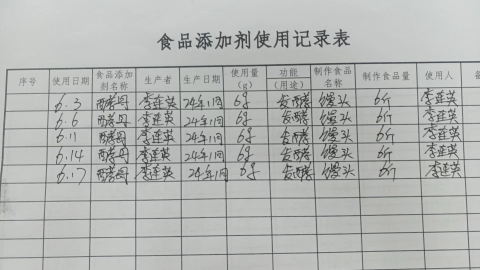 食品添加剂使用记录表
序号 使用日期 食品添加剂名称 生产者 生产日期 使用量(g) 功能(用途) 制作食品名称 制作食品量 使用人
6.3 酵母 李莲英 24年1月 6g 发酵 馒头 6斤 李莲英
6.6 酵母 李莲英 24年1月 6g 发酵 馒头 6斤 李莲英
6.11 酵母 李莲英 24年1月 6g 发酵 馒头 6斤 李莲英
6.14 酵母 李莲英 24年1月 6g 发酵 馒头 6斤 李莲英
6.17 酵母 李莲英 24年1月 6g 发酵 馒头 6斤 李莲英